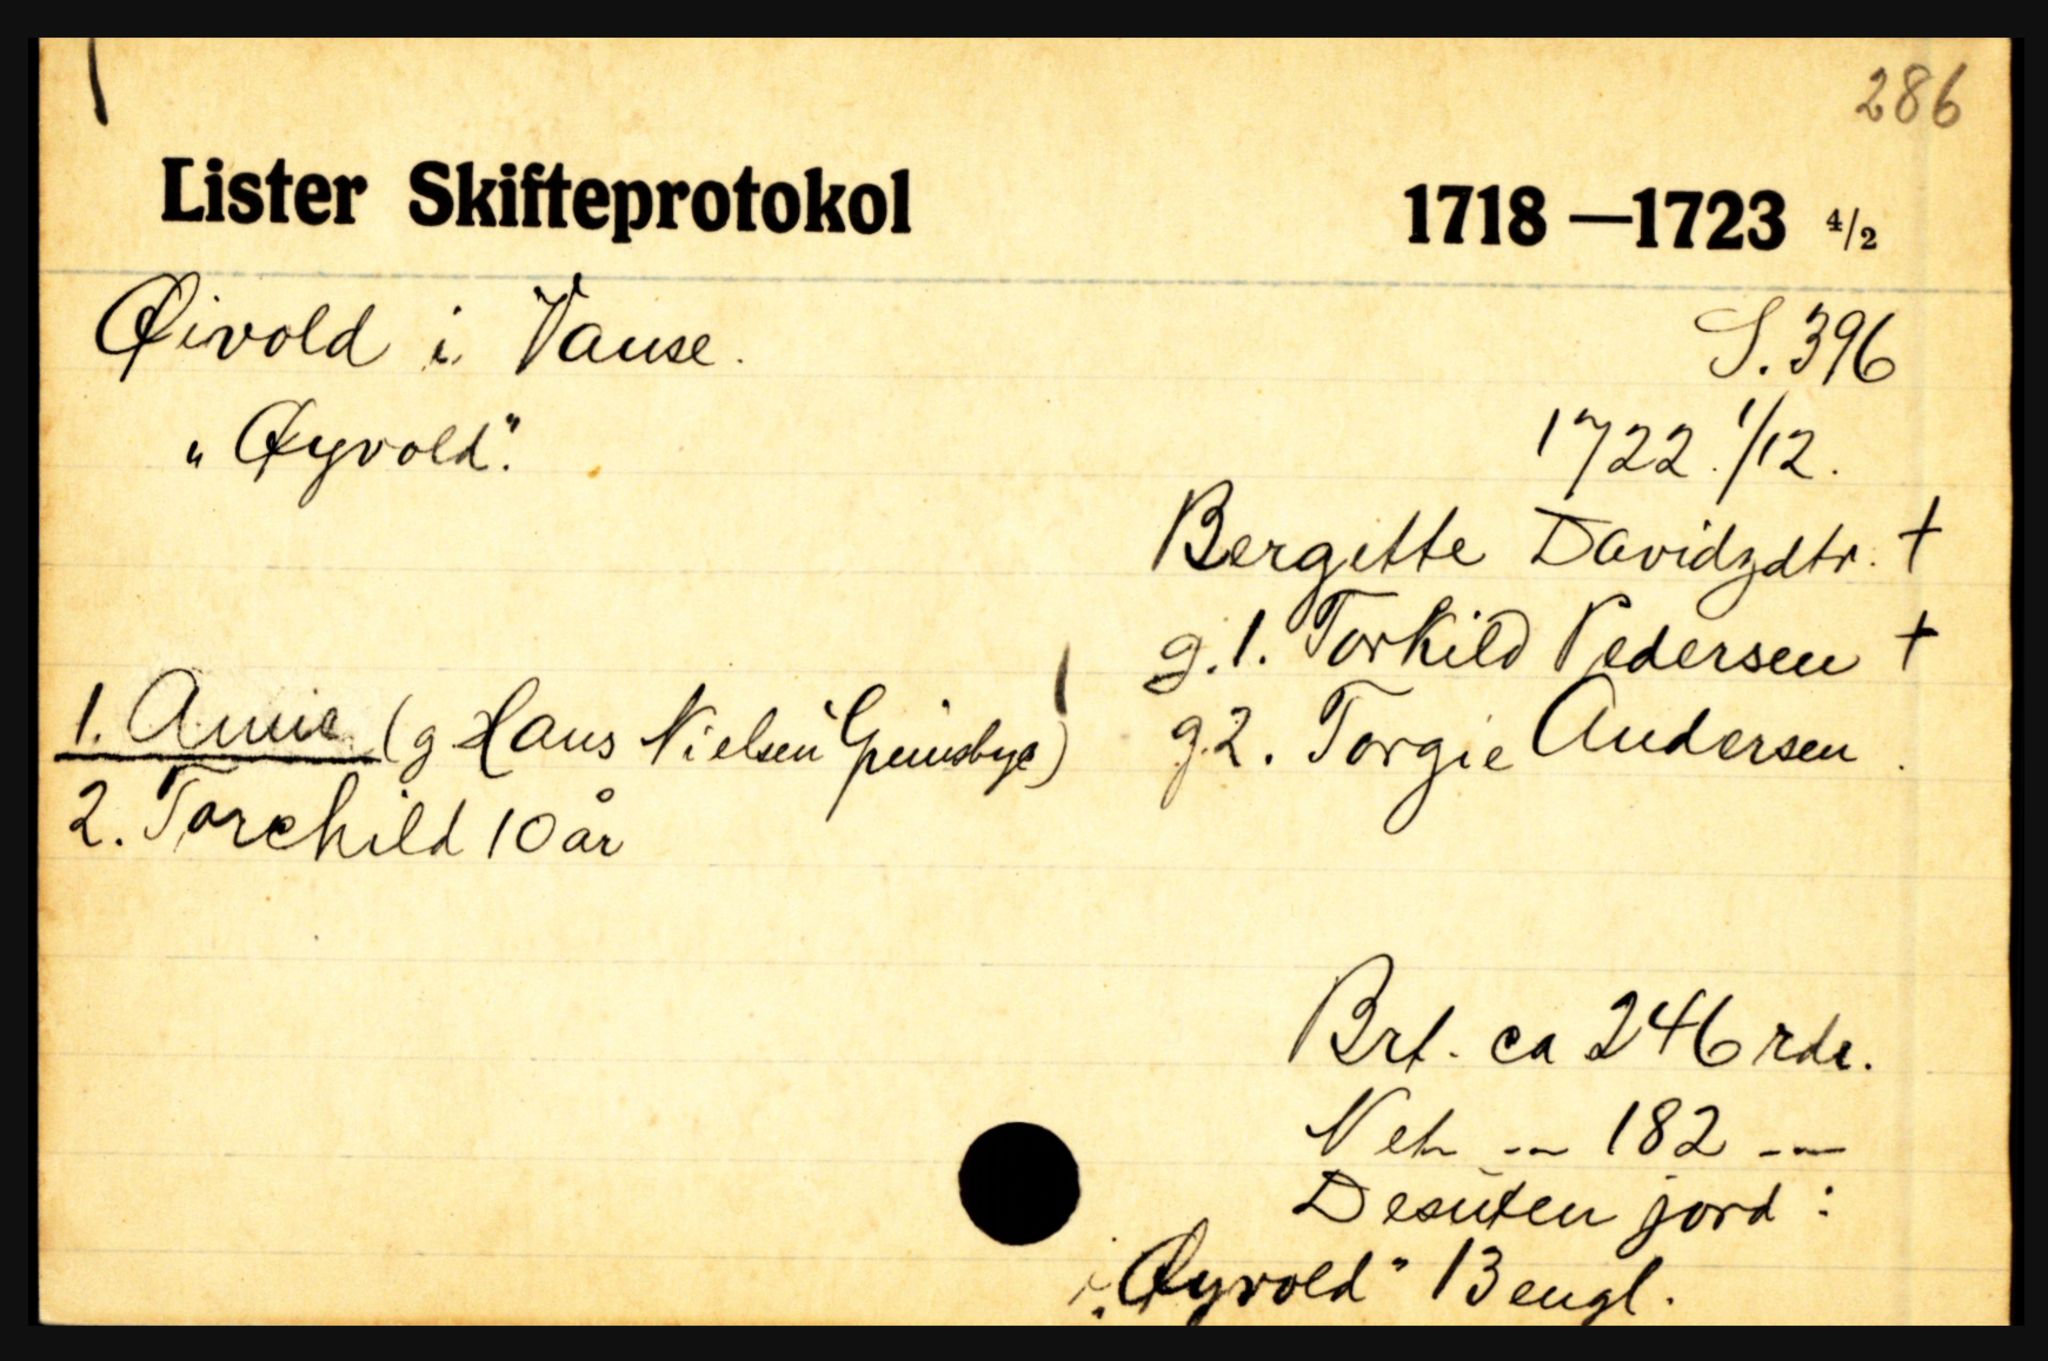 286
Lister Skifteprotokol 1718—1723 4/2
Øivold i Vanse. S. 396
"Øyvold". 1722. 1/12.
Bergitte Davidzdtr. †
g. 1. Torkild Pedersen †
1. Annie (g Hans Nielsen "Grimsbye") g. 2. Torgie Andersen.
2. Torchild 10 år
Brt. ca 246 rdr.
Net — 182 —
Desuten jord:
i "Øyvold" 13 engl.